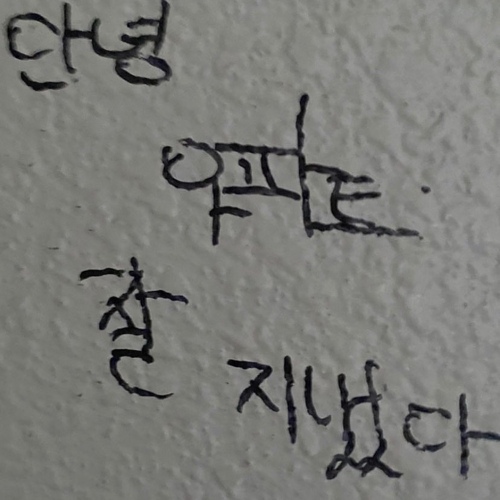 안녕
아파트.
잘
지냈다